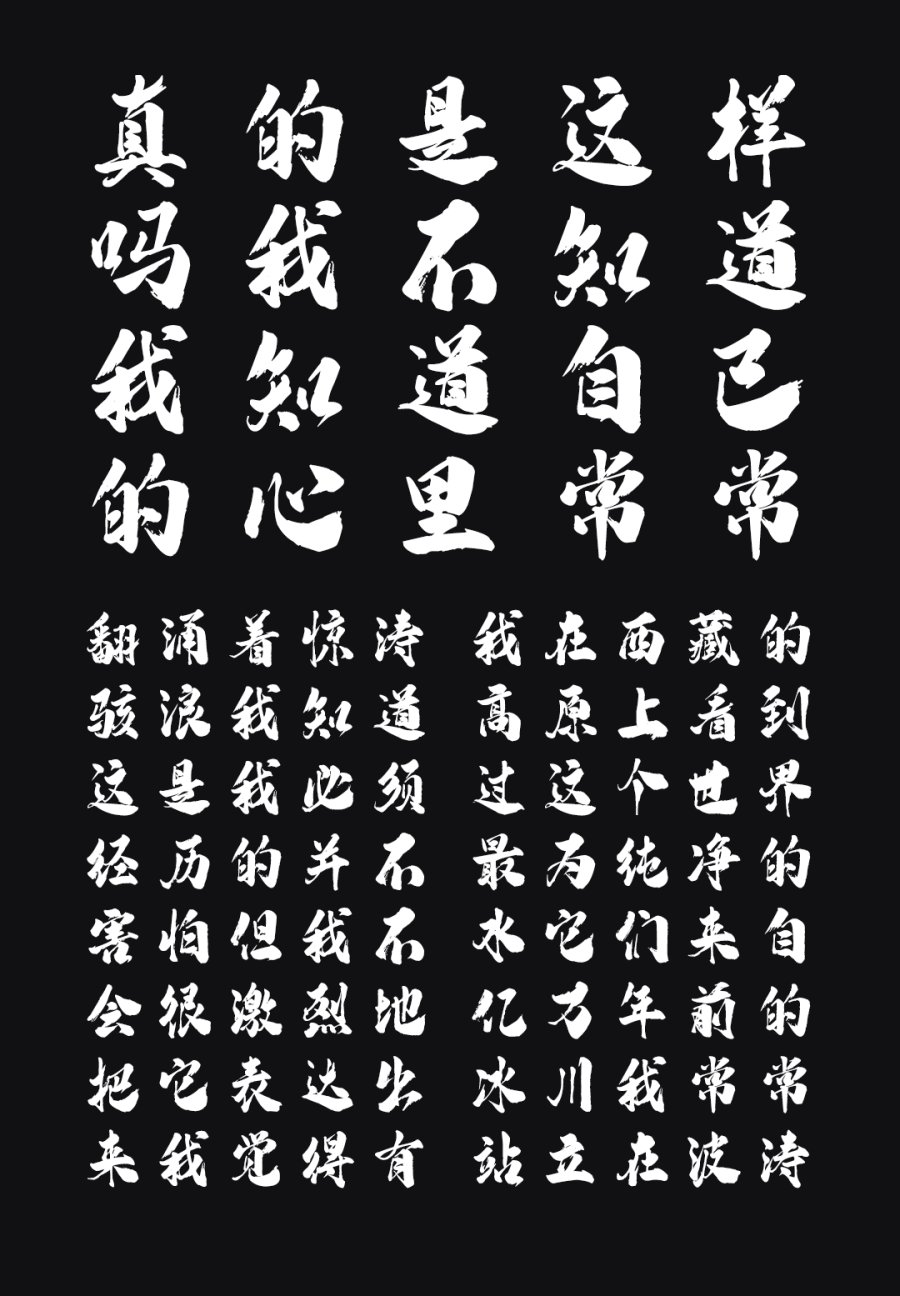 真的是这样
吗我不知道
我知道自己
的心里常常
翻涌着惊涛
骇浪我知道
这是我必须
经历的并不
害怕但我不
会很激烈地
把它表达出
来我觉得有
我在西藏的
高原上看到
过这个世界
最为纯净的
水它们来自
亿万年前的
冰川我常常
站立在波涛